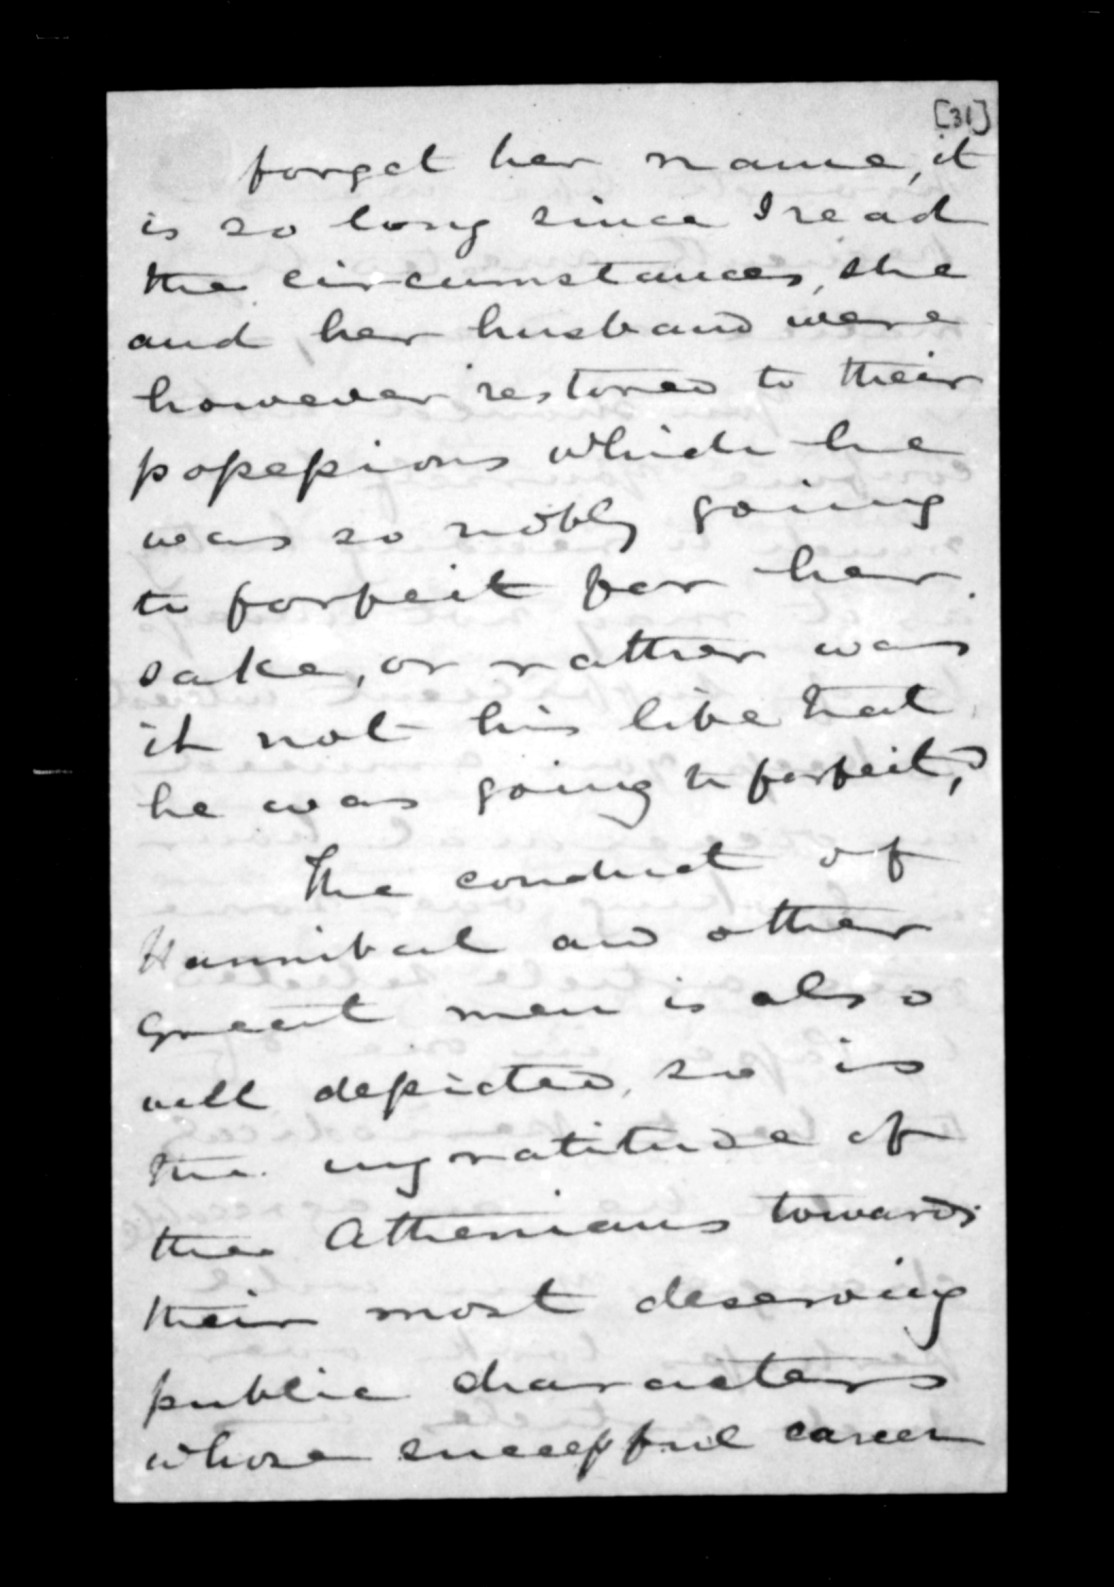 [31]
forget her name, it
is so long since I read
the circumstances, she
and her husband were
however restored to their
possessions which he
was so nobly going
to forfeit for her
sake, or rather was
it not his life that
he was going to forfeit,?
The conduct of
Hannibal and other
great men is also
well depicted, so is
the ingratitude of
the Athenians towards
their most deserving
public characters
whose successful career